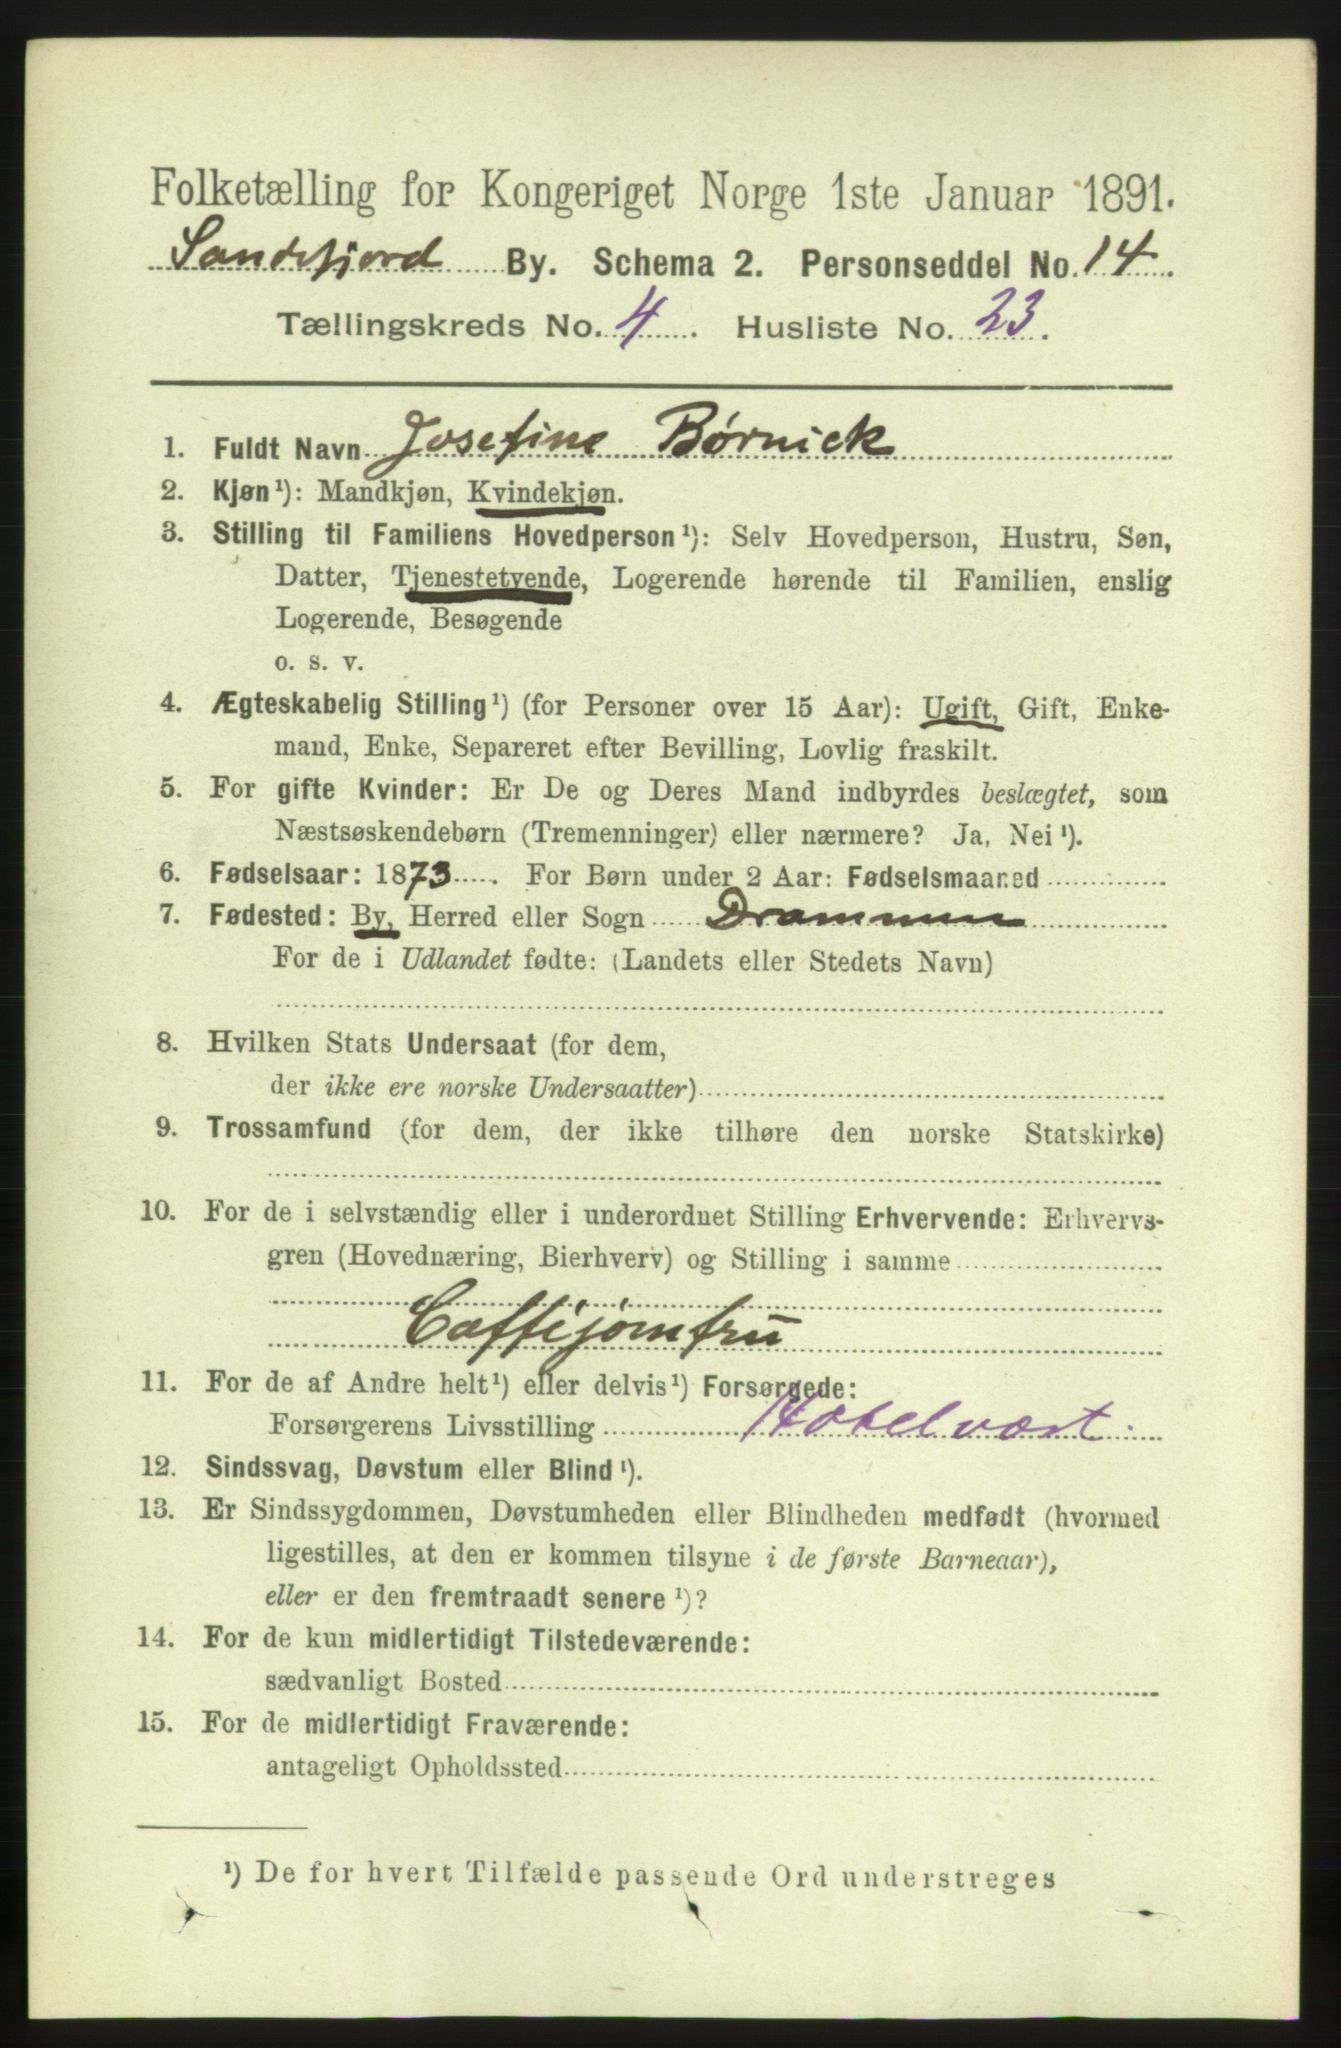 Folketælling for Kongeriget Norge 1ste Januar 1891.
Sandefjord By. Schema 2. Personseddel No. 14.
Tællingskreds No. 4. Husliste No. 23.
1. Fuldt Navn Josefine Børnick
2. Kjøn¹): Mandkjøn, Kvindekjøn.
3. Stilling til Familiens Hovedperson¹): Selv Hovedperson, Hustru, Søn,
Datter, Tjenestetyende, Logerende hørende til Familien, enslig
Logerende, Besøgende
o. s. v.
4. Ægteskabelig Stilling¹) (for Personer over 15 Aar): Ugift, Gift, Enke-
mand, Enke, Separeret efter Bevilling, Lovlig fraskilt.
5. For gifte Kvinder: Er De og Deres Mand indbyrdes beslægtet, som
Næstsøskendebørn (Tremenninger) eller nærmere? Ja, Nei¹).
6. Fødselsaar: 1873. For Børn under 2 Aar: Fødselsmaaned
7. Fødested: By, Herred eller Sogn Drammen
For de i Udlandet fødte: (Landets eller Stedets Navn)
8. Hvilken Stats Undersaat (for dem,
der ikke ere norske Undersaatter)
9. Trossamfund (for dem, der ikke tilhøre den norske Statskirke)
10. For de i selvstændig eller i underordnet Stilling Erhvervende: Erhvervs-
gren (Hovednæring, Bierhverv) og Stilling i samme
Caffejomfru
11. For de af Andre helt¹) eller delvis¹) Forsørgede:
Forsørgerens Livsstilling Hotelvært.
12. Sindssvag, Døvstum eller Blind¹).
13. Er Sindssygdommen, Døvstumheden eller Blindheden medfødt (hvormed
ligestilles, at den er kommen tilsyne i de første Barneaar),
eller er den fremtraadt senere¹)?
14. For de kun midlertidigt Tilstedeværende:
sædvanligt Bosted
15. For de midlertidigt Fraværende:
antageligt Opholdssted
¹) De for hvert Tilfælde passende Ord understreges